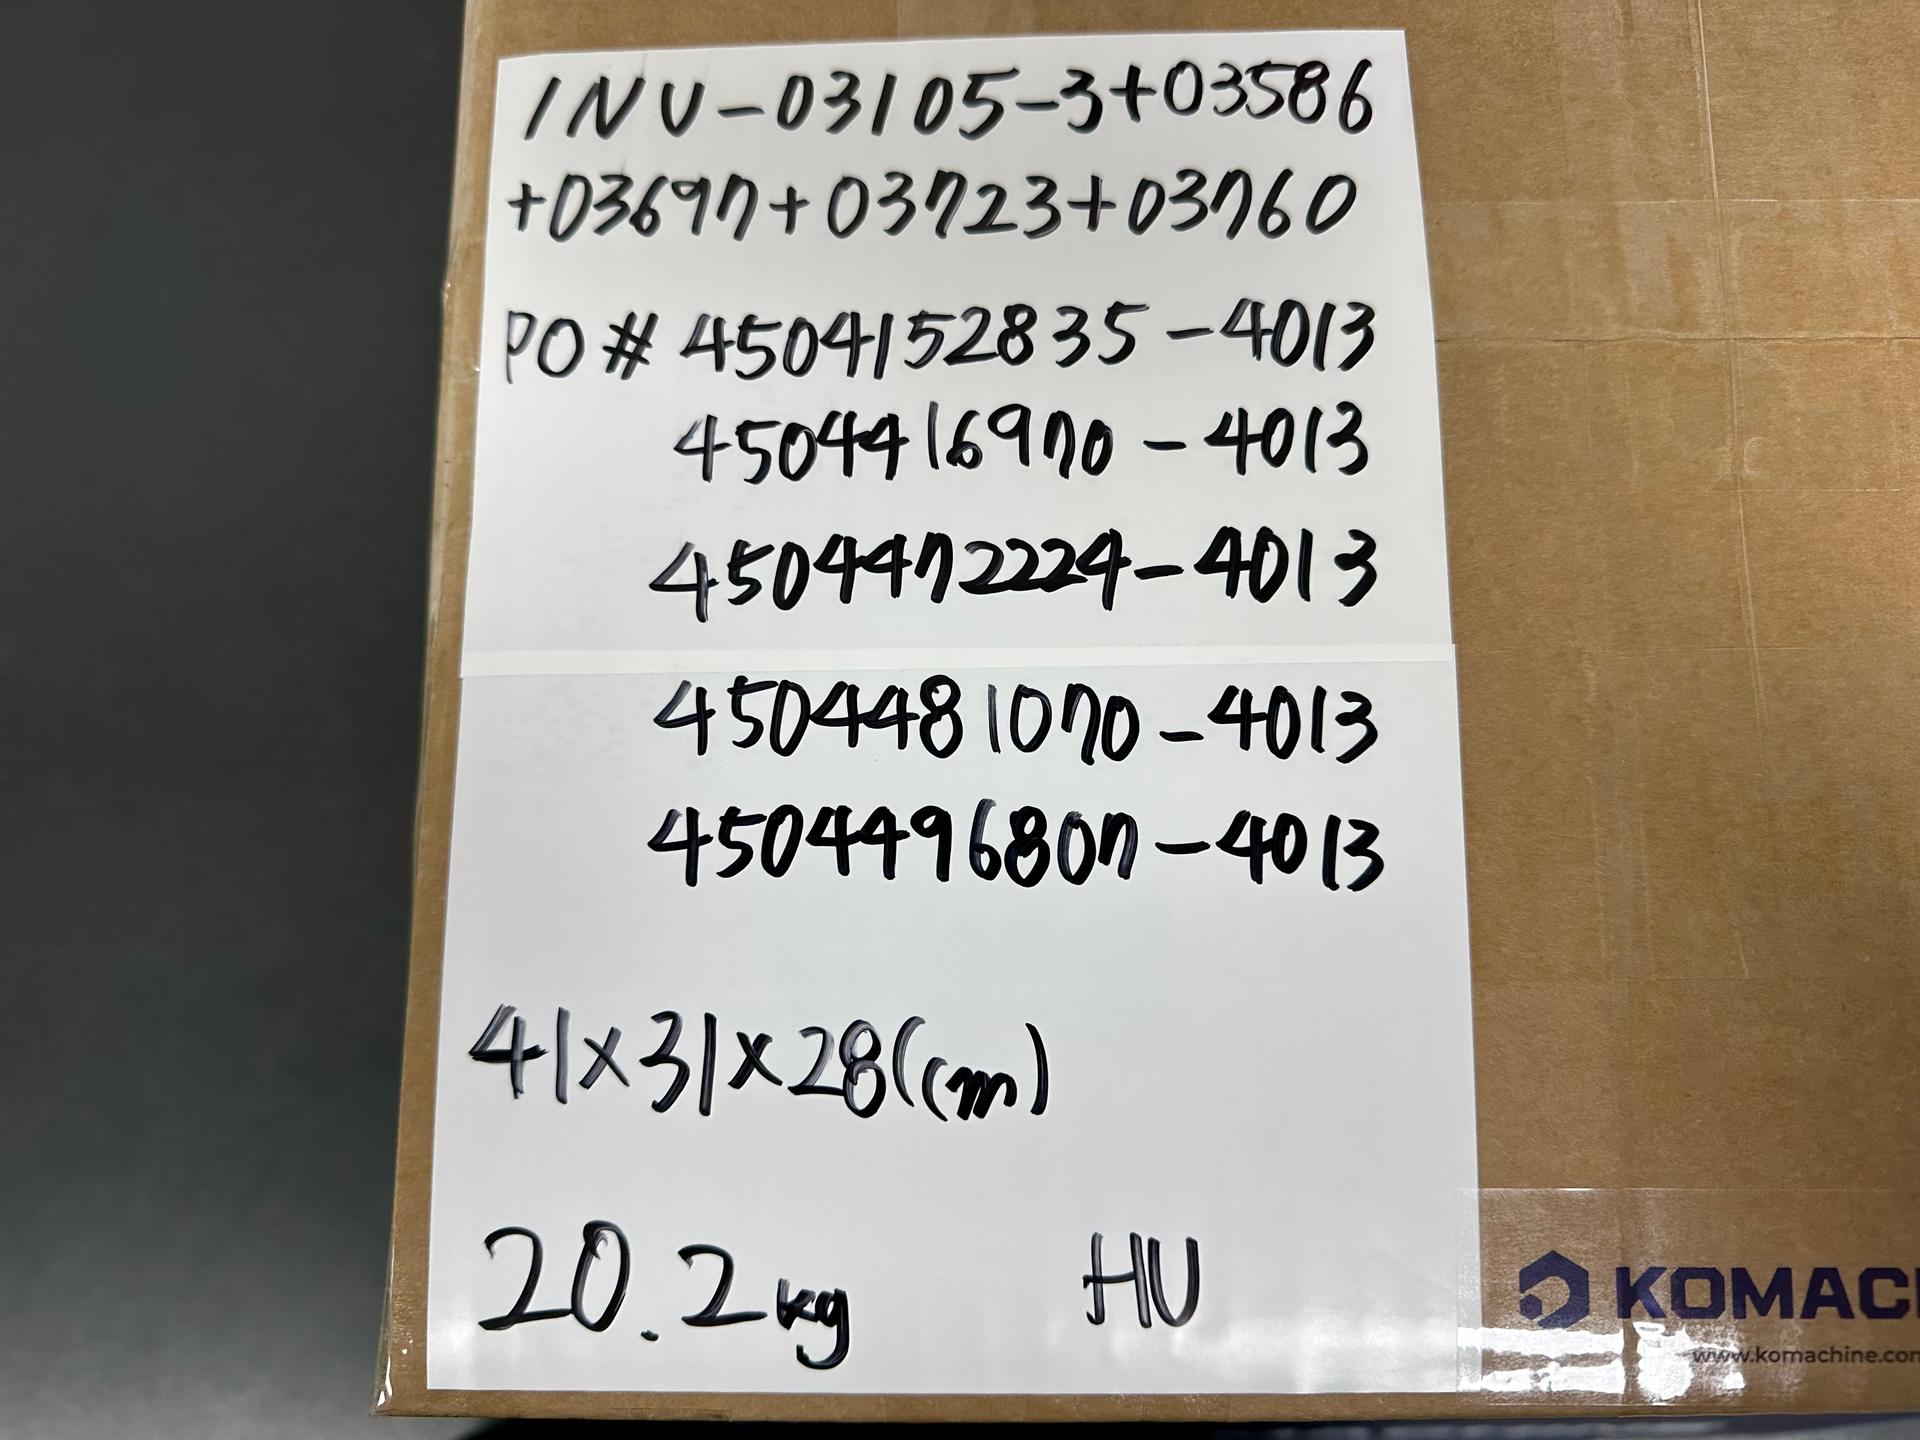 INV-03105-3+03586
+03697+03723+03760
PO# 4504152835-4013
4504416970-4013
4504472224-4013
4504481070-4013
4504496807-4013
41x31x28(cm)
20.2kg
HU
KOMACH
www.komachine.com